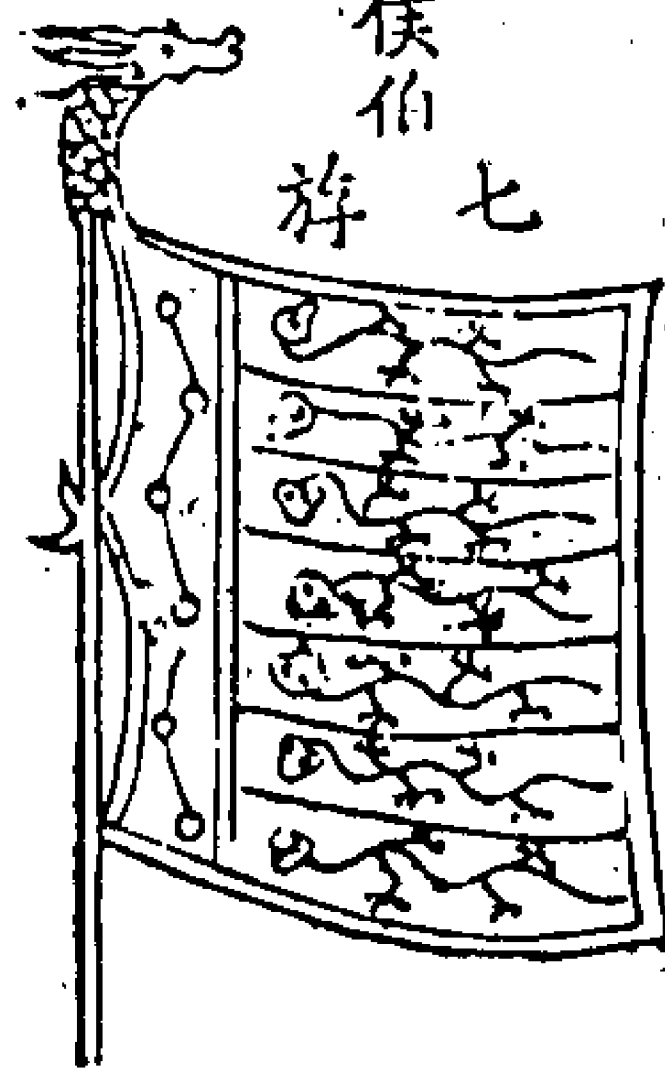 侯伯
七斿